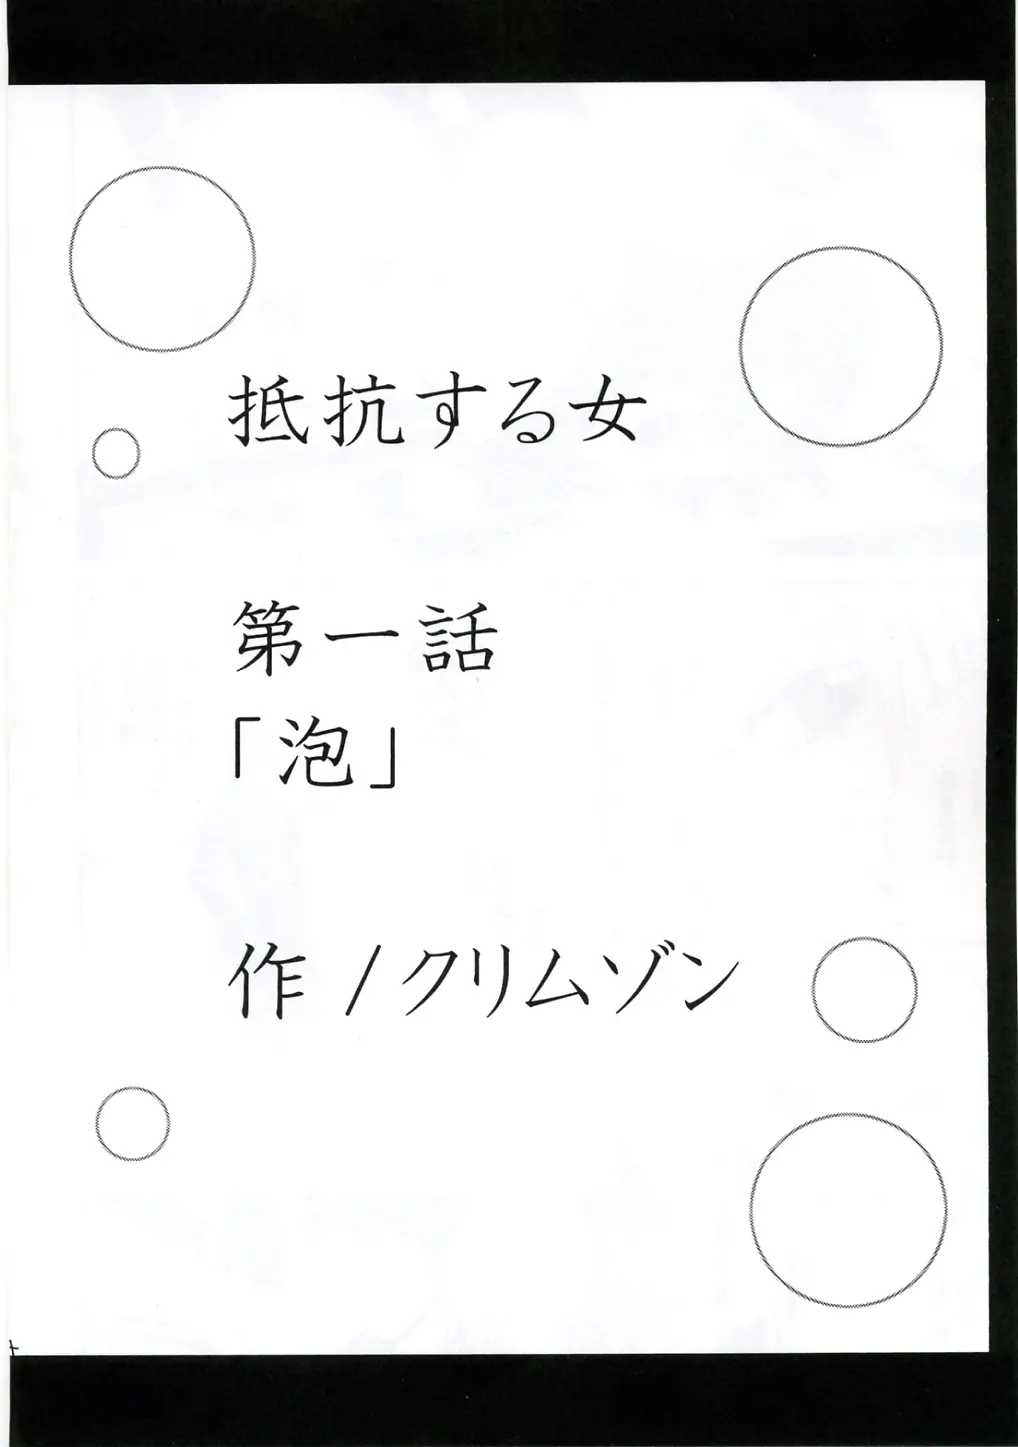 抵抗する女
第一話
「泡」
作/クリムゾン